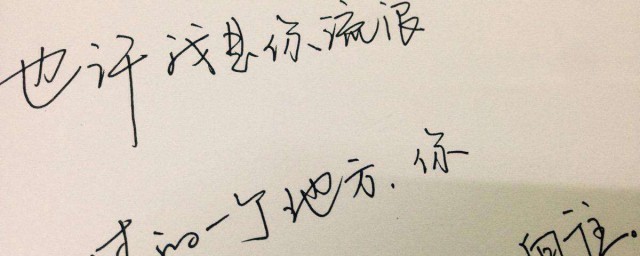 也许我是你流浪
的一个地方.你